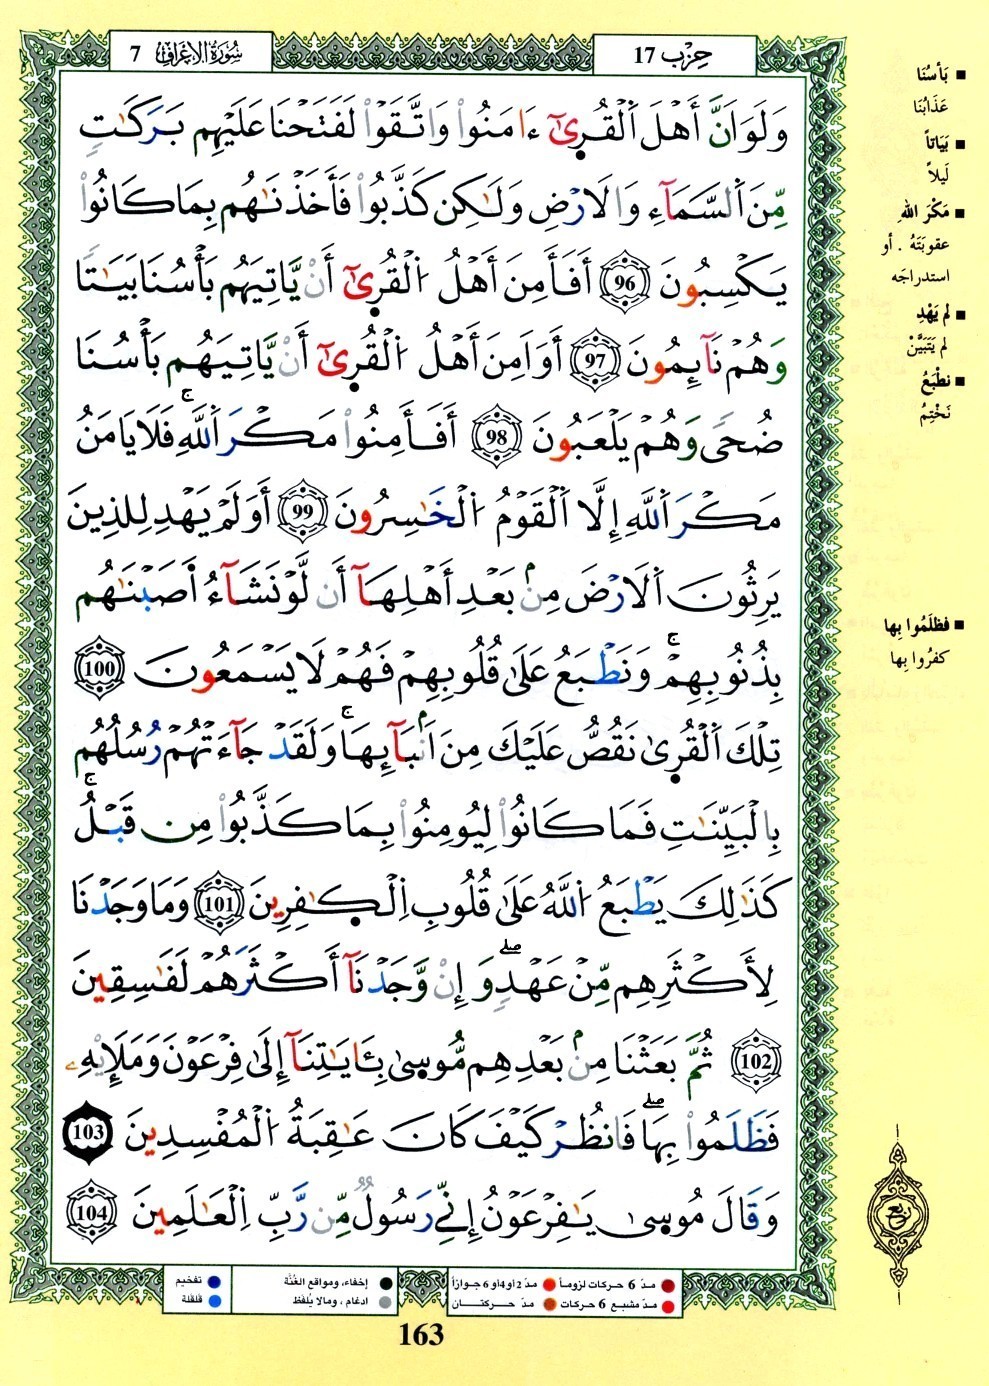 سُورَةُ الاَعْرَافِ 7
حِزْب 17
وَلَوَ اَنَّ أَهْلَ اَلْقُرِىٰٓ ءَامَنُواْ وَاتَّقَوْاْ لَفَتَحْنَا عَلَيْهِم بَرَكَٰتٖ
مِّنَ اَلسَّمَآءِ وَالَارْضِ وَلَٰكِن كَذَّبُواْ فَأَخَذْنَٰهُم بِمَا كَانُواْ
يَكْسِبُونَ 96 أَفَأَمِنَ أَهْلُ اُلْقُرِىٰٓ أَنْ يَّاتِيَهُم بَأْسُنَا بَيَٰتاٗ
وَهُمْ نَآئِمُونَ 97 أَوَ امِنَ أَهْلُ اُلْقُرِىٰٓ أَنْ يَّاتِيَهُم بَأْسُنَا
ضُحىٗ وَهُمْ يَلْعَبُونَ 98 أَفَأَمِنُواْ مَكْرَ اَللَّهِۚ فَلَا يَامَنُ
مَكْرَ اَللَّهِ إِلَّا اَلْقَوْمُ اُلْخَٰسِرُونَ 99 أَوَلَمْ يَهْدِ لِلذِينَ
يَرِثُونَ اَلَارْضَ مِنۢ بَعْدِ أَهْلِهَآ أَن لَّوْ نَشَآءُ أَصَبْنَٰهُم
بِذُنُوبِهِمْۚ وَنَطْبَعُ عَلَىٰ قُلُوبِهِمْ فَهُمْ لَا يَسْمَعُونَ 100
تِلْكَ اَلْقُرِىٰ نَقُصُّ عَلَيْكَ مِنَ اَنۢبَآئِهَاۚ وَلَقَدْ جَآءَتْهُمْ رُسُلُهُم
بِالْبَيِّنَٰتِ فَمَا كَانُواْ لِيُومِنُواْ بِمَا كَذَّبُواْ مِن قَبْلُۚ
كَذَٰلِكَ يَطْبَعُ اُللَّهُ عَلَىٰ قُلُوبِ اِلْكٰ۪فِرِينَ 101 وَمَا وَجَدْنَا
لِأَكْثَرِهِم مِّنْ عَهْدٖۖ وَإِنْ وَّجَدْنَآ أَكْثَرَهُمْ لَفَٰسِقِينَ
102 ثُمَّ بَعَثْنَا مِنۢ بَعْدِهِم مُّوسىٰ بِـَٔايَٰتِنَآ إِلَىٰ فِرْعَوْنَ وَمَلَإِيْهِۦ
فَظَلَمُواْ بِهَاۖ فَانظُرْ كَيْفَ كَانَ عَٰقِبَةُ اُلْمُفْسِدِينَ 103
وَقَالَ مُوسىٰ يَٰفِرْعَوْنُ إِنِّي رَسُولٞ مِّن رَّبِّ اِلْعَٰلَمِينَ 104
■ بَأسُنَا
عَذَابُنَا
■ بَيَاتاً
لَيلاً
■ مَكْرَ الله
عقوبَتَهُ . أو
استدراجَه
■ لم يَهْدِ
لم يَتَبَيَّنْ
■ نطْبَعُ
نَخْتِمُ
■ فظلَمُوا بِها
كفرُوا بِها
ربع
● مدّ 6 حركات لزوماً ● مدّ 2 أو 4 أو 6 جوازاً
● مدّ مشبع 6 حركات ● مدّ حركتــان
● إخفاء، ومواقع الغُنَّة
● ادغام ، ومالا يُلفَظ
● تفخيم
● قلقلة
163